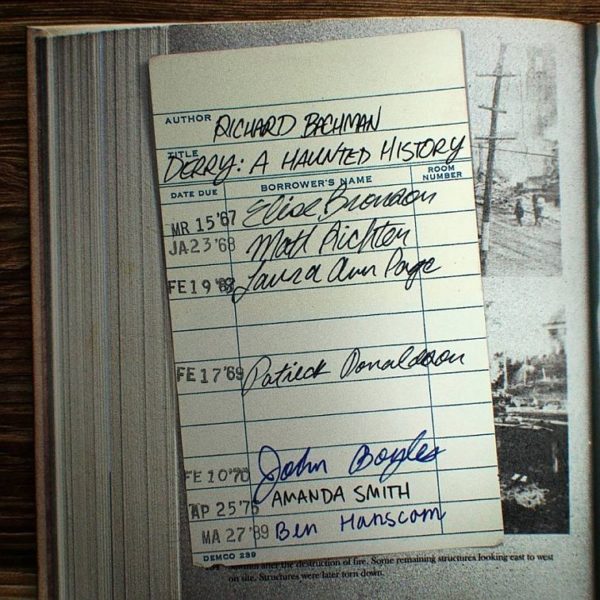 AUTHOR RICHARD BACHMAN
TITLE DERRY: A HAUNTED HISTORY
DATE DUE BORROWER'S NAME ROOM NUMBER
MR 15'67 Elise Brondon
JA 23'68 Matt Richter
FE 19 Laura Ann Page
FE 17'69 Patrick Donaldson
FE 10'70 John Boyles
AP 25 AMANDA SMITH
MA 27'89 Ben Hanscom
DEMCO 239
after the destruction of fire. Some remaining structures looking east to west
on site. Structures were later torn down.